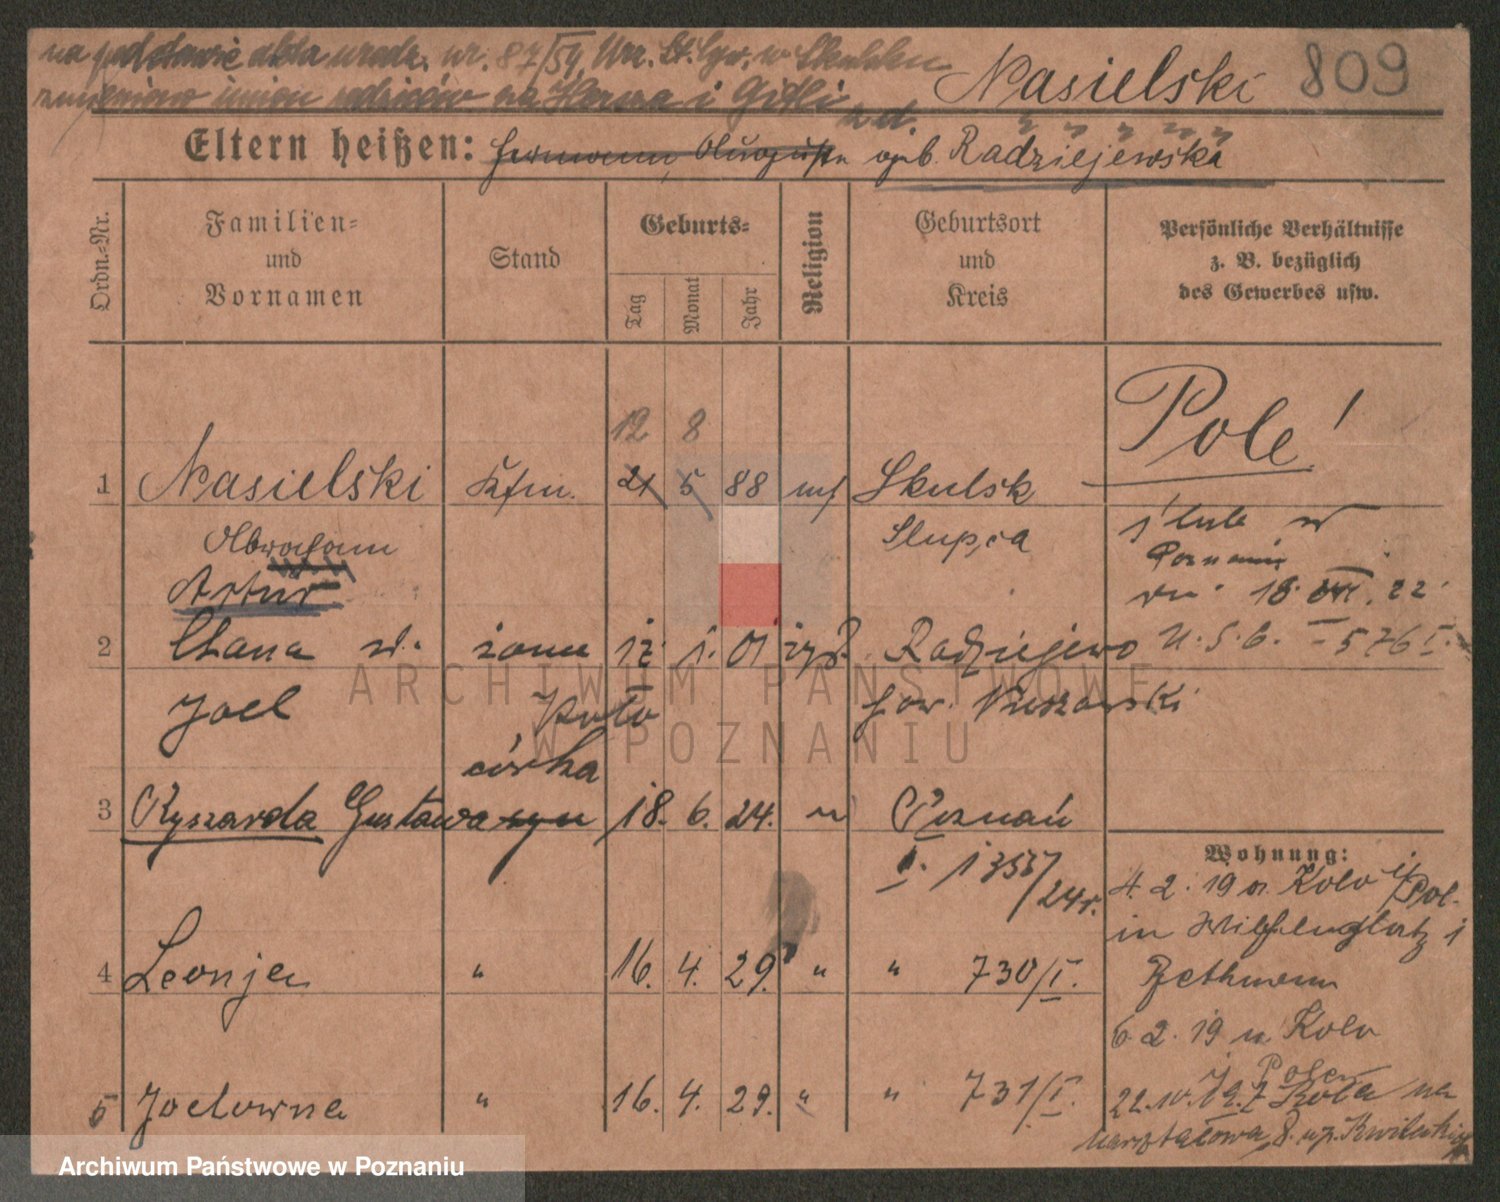 na podstawie aktu urodz. nr. 87/59 Urz. St. Cyw. w Skulsku
zmieniono imion rodziców na Hersza i Gitli
z d.
Nasielski 809
Eltern heißen: Hermann, Auguste geb. Radziejewska
Ordn.-Nr.
Familien-
und
Vornamen
Stand
Geburts-
Tag
Monat
Jahr
Religion
Geburtsort
und
Kreis
Persönliche Verhältnisse
z. B. bezüglich
des Gewerbes usw.
12 8
Pole!
1 Nasielski Kfm. 21 5 88 mos Skulsk
Abraham Słupca
Artur
ślub w
Poznaniu
dn. 18. 22
2 Chana żona 12. 1. 01 Radziejewo
U.S.C. I 576
Joel
córka
3 Ryszarda Gustawa syn 18. 6. 24. " Poznań
I. 1355/24r.
Wohnung:
4. 2. 19 Kolo i/Pol.
in Wilhelmplatz 1
4 Leonja " 16. 4. 29. " " 730/I.
Bethmann
6. 2. 19 n Kolo
i. Polen
5 Joelowna " 16. 4. 29. " " 731/I.
22. 10. 19 z Kola na
8.
ARCHIWUM PAŃSTWOWE
W POZNANIU
Archiwum Państwowe w Poznaniu